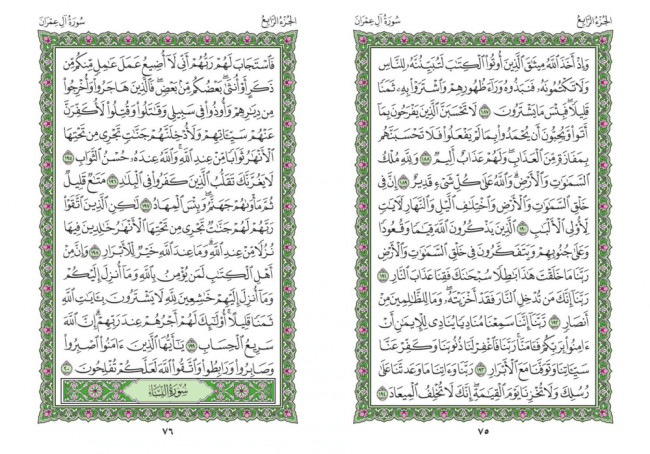 الجزء الرابع
سورة آل عمران
وَإِذْ أَخَذَ اللَّهُ مِيثَاقَ الَّذِينَ أُوتُوا الْكِتَابَ لَتُبَيِّنُنَّهُ لِلنَّاسِ
وَلَا تَكْتُمُونَهُ فَنَبَذُوهُ وَرَاءَ ظُهُورِهِمْ وَاشْتَرَوْا بِهِ ثَمَنًا
قَلِيلًا فَبِئْسَ مَا يَشْتَرُونَ ١٨٧ لَا تَحْسَبَنَّ الَّذِينَ يَفْرَحُونَ بِمَا
أَتَوا وَّيُحِبُّونَ أَن يُحْمَدُوا بِمَا لَمْ يَفْعَلُوا فَلَا تَحْسَبَنَّهُم
بِمَفَازَةٍ مِّنَ الْعَذَابِ وَلَهُمْ عَذَابٌ أَلِيمٌ ١٨٨ وَلِلَّهِ مُلْكُ
السَّمَاوَاتِ وَالْأَرْضِ وَاللَّهُ عَلَىٰ كُلِّ شَيْءٍ قَدِيرٌ ١٨٩ إِنَّ فِي
خَلْقِ السَّمَاوَاتِ وَالْأَرْضِ وَاخْتِلَافِ اللَّيْلِ وَالنَّهَارِ لَآيَاتٍ
لِّأُولِي الْأَلْبَابِ ١٩٠ الَّذِينَ يَذْكُرُونَ اللَّهَ قِيَامًا وَقُعُودًا
وَعَلَىٰ جُنُوبِهِمْ وَيَتَفَكَّرُونَ فِي خَلْقِ السَّمَاوَاتِ وَالْأَرْضِ
رَبَّنَا مَا خَلَقْتَ هَٰذَا بَاطِلًا سُبْحَانَكَ فَقِنَا عَذَابَ النَّارِ ١٩١
رَبَّنَا إِنَّكَ مَن تُدْخِلِ النَّارَ فَقَدْ أَخْزَيْتَهُ وَمَا لِلظَّالِمِينَ مِنْ
أَنصَارٍ ١٩٢ رَّبَّنَا إِنَّنَا سَمِعْنَا مُنَادِيًا يُنَادِي لِلْإِيمَانِ أَنْ
آمِنُوا بِرَبِّكُمْ فَآمَنَّا رَبَّنَا فَاغْفِرْ لَنَا ذُنُوبَنَا وَكَفِّرْ عَنَّا
سَيِّئَاتِنَا وَتَوَفَّنَا مَعَ الْأَبْرَارِ ١٩٣ رَبَّنَا وَآتِنَا مَا وَعَدتَّنَا عَلَىٰ
رُسُلِكَ وَلَا تُخْزِنَا يَوْمَ الْقِيَامَةِ إِنَّكَ لَا تُخْلِفُ الْمِيعَادَ ١٩٤
٧٥
الجزء الرابع
سورة آل عمران
فَاسْتَجَابَ لَهُمْ رَبُّهُمْ أَنِّي لَا أُضِيعُ عَمَلَ عَامِلٍ مِّنكُم مِّن
ذَكَرٍ أَوْ أُنثَىٰ بَعْضُكُم مِّن بَعْضٍ فَالَّذِينَ هَاجَرُوا وَأُخْرِجُوا
مِن دِيَارِهِمْ وَأُوذُوا فِي سَبِيلِي وَقَاتَلُوا وَقُتِلُوا لَأُكَفِّرَنَّ
عَنْهُمْ سَيِّئَاتِهِمْ وَلَأُدْخِلَنَّهُمْ جَنَّاتٍ تَجْرِي مِن تَحْتِهَا
الْأَنْهَارُ ثَوَابًا مِّنْ عِندِ اللَّهِ وَاللَّهُ عِندَهُ حُسْنُ الثَّوَابِ ١٩٥
لَا يَغُرَّنَّكَ تَقَلُّبُ الَّذِينَ كَفَرُوا فِي الْبِلَادِ ١٩٦ مَتَاعٌ قَلِيلٌ
ثُمَّ مَأْوَاهُمْ جَهَنَّمُ وَبِئْسَ الْمِهَادُ ١٩٧ لَٰكِنِ الَّذِينَ اتَّقَوْا
رَبَّهُمْ لَهُمْ جَنَّاتٌ تَجْرِي مِن تَحْتِهَا الْأَنْهَارُ خَالِدِينَ فِيهَا
نُزُلًا مِّنْ عِندِ اللَّهِ وَمَا عِندَ اللَّهِ خَيْرٌ لِّلْأَبْرَارِ ١٩٨ وَإِنَّ مِنْ
أَهْلِ الْكِتَابِ لَمَن يُؤْمِنُ بِاللَّهِ وَمَا أُنزِلَ إِلَيْكُمْ
وَمَا أُنزِلَ إِلَيْهِمْ خَاشِعِينَ لِلَّهِ لَا يَشْتَرُونَ بِآيَاتِ اللَّهِ
ثَمَنًا قَلِيلًا أُولَٰئِكَ لَهُمْ أَجْرُهُمْ عِندَ رَبِّهِمْ إِنَّ اللَّهَ
سَرِيعُ الْحِسَابِ ١٩٩ يَا أَيُّهَا الَّذِينَ آمَنُوا اصْبِرُوا
وَصَابِرُوا وَرَابِطُوا وَاتَّقُوا اللَّهَ لَعَلَّكُمْ تُفْلِحُونَ ٢٠٠
سورة النساء
٧٦